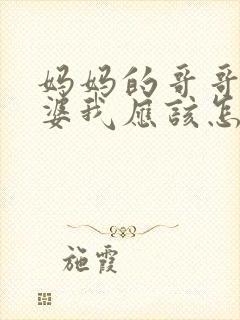 妈妈的哥哥
婆我应该怎
施霞